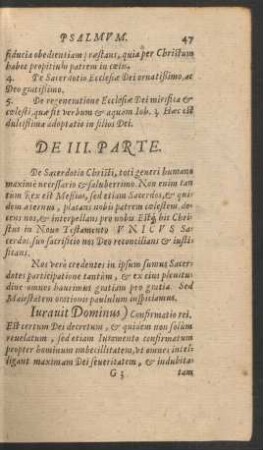 PSALMVM. 47
fiducia obedientiam præstant, quia per Christum
habet propitium patrem in cœlo.
4. De Sacerdotio Ecclesiæ Dei ornatissimo, ac
Deo gratissimo.
5. De regeneratione Ecclesiæ Dei mirifica &
cœlesti, quæ fit verbum & aquam Ioh. 3 Hæc est
dulcissima adoptatio in filios Dei.
DE III. PARTE.
De Sacerdotio Christi, toti generi humano
maximè necessario & saluberrimo. Non enim tan
tum Rex est Messias, sed etiam Sacerdos, & qui
dem æternus, placans nobis patrem cœlestem, do
cens nos, & interpellans pro nobis Estq́; hic Chri
stus in Nouo Testamento VNICVS Sa
cerdos, suo sacrificio nos Deo reconcilians & iusti
ficans.
Nos verò credentes in ipsum sumus Sacer
dotes participatione tantùm, & ex eius plenitu
dine omnes haurimus gratiam pro gratia. Sed
Maiestatem orationis paululum inspiciamus.
Iurauit Dominus) Confirmatio rei.
Est certum Dei decretum, & quidem non solùm
reuelatum, sed etiam Iuramento confirmatum
propter hominum imbecillitatem, vt omnes intel
ligant maximam Dei seueritatem, & indubita
G 3 tam